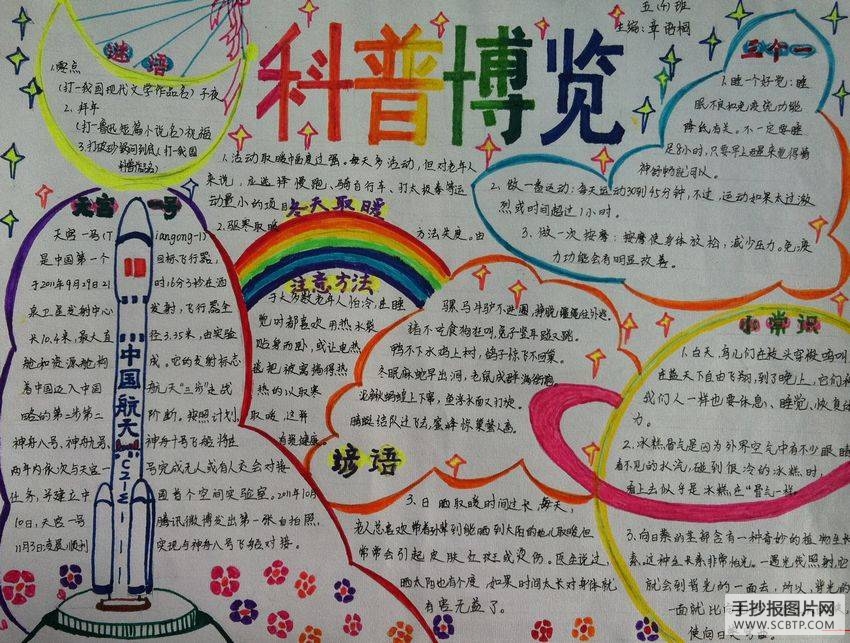 科普博览
五(4)班
主编:章语桐
谜语
1.零点
(打一我国现代文学作品名)子夜
2.拜年
(打一鲁迅短篇小说名)祝福
3.打破砂锅问到底(打一我国
天宫一号
天宫一号(Tiangong-1)
是中国第一个目标飞行器,
于2011年9月29日21时16分3秒在酒
泉卫星发射中心发射,飞行器全
长10.4米,最大直径3.35米,由实验
舱和资源舱构成。它的发射标志
着中国迈入中国航天"三步"走战
略的第二步第二阶断。按照计划,
神舟八号、神舟九号、神舟十号飞船将在
两年内依次与天宫一号完成无人或有人交会对接
任务,并建立中国首个空间实验室。2011年10月
10日,天宫一号腾讯微博发出第一张自拍照,
11月3日凌晨顺利实现与神舟八号飞船对接。
中国航天
CZ-2F
冬天取暖
注意方法
1.活动取暖幅度过强。每天多活动,但对老年人
来说,应选择慢跑、骑自行车、打太极拳等运
动量小的项目
2.驱寒取暖方法失度。由
于大多数老年人怕冷,在睡
觉时都喜欢用热水袋
贴身而卧,或让电热
毯把被窝捂得热
热的以取寒
取暖,这并
有损健康。
3.日晒取暖时间过长,每天,
老人总喜欢带着孙辈到能晒到太阳的地儿取暖但
常常会引起皮肤红斑或灼伤。医生说过,
晒太阳也有个度,如果时间太长对身体就
有害无益了。
三个一
1.睡一个好觉:睡
眠不良和免疫优功能
降低有关。不一定要睡
足8小时,只要早上醒来觉得精
神舒畅就可以。
2.做一盘运动:每天运动30到45分钟,不过,运动如果太过激
烈或时间超过1小时。
3.做一次按摩:按摩使身体放松,减少压力。免疫
力功能会有明显改善。
谚语
骡马牛驴不进圈,神脱缰绳往外逃。
猪不吃食狗狂叫,兔子竖耳蹦又跳。
鸭不下水鸡上树,鸽子惊飞不回巢。
冬眠麻蛇早出洞,老鼠成群满街跑。
蜻蜓结队过飞去,蜜蜂惊巢蛰人畜。
小常识
1.白天,鸟儿们在
在蓝天下自由飞翔,到了晚上,它们和
我们人一样也要休息、睡觉,恢复体
力。
2.冰糕冒气是因为外界空气中有不少眼睛
看不见的水汽,碰到很冷的冰糕时,
看上去似乎是冰糕在"冒气"一样
3.向日葵的茎部含有一种奇妙的植物生长
素,这种生长素非常怕光。一遇光线照射,它
就会到背光的一面去,所以,背光的
一面就比
使向日葵
手抄报图片网
WWW.SCBTP.COM